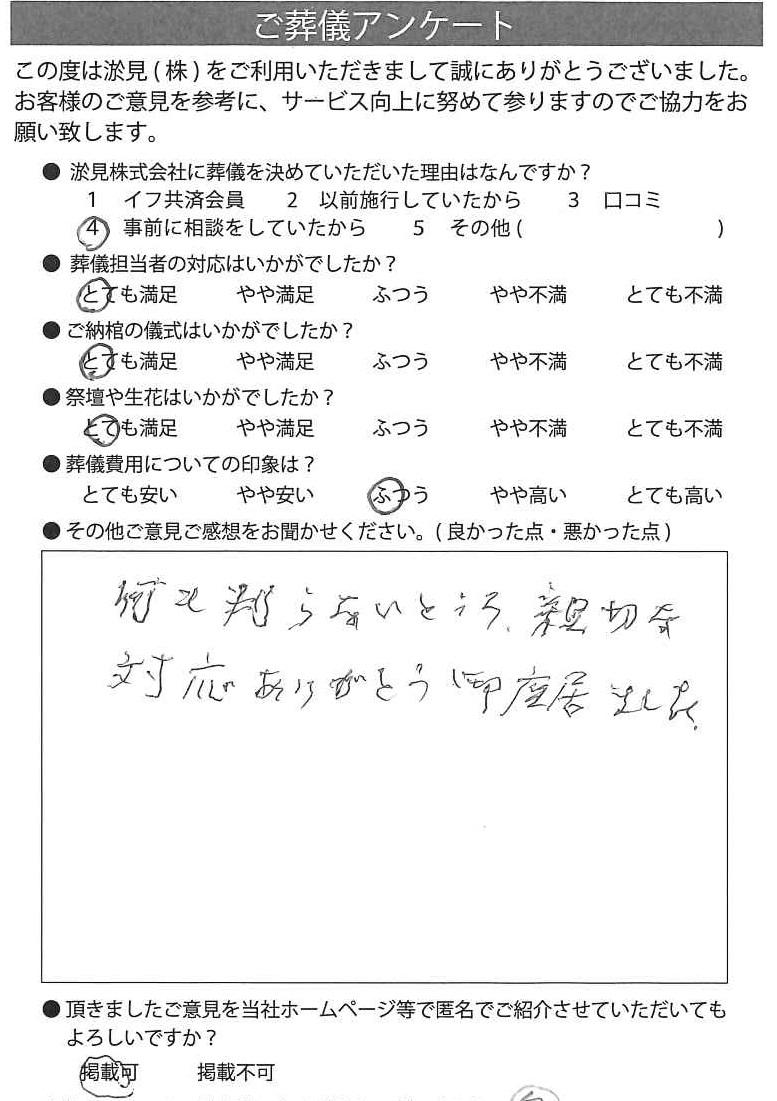 ご葬儀アンケート
この度は淤見(株)をご利用いただきまして誠にありがとうございました。
お客様のご意見を参考に、サービス向上に努めて参りますのでご協力をお
願い致します。
● 淤見株式会社に葬儀を決めていただいた理由はなんですか？
1 イフ共済会員 2 以前施行していたから 3 口コミ
4 事前に相談をしていたから 5 その他( )
● 葬儀担当者の対応はいかがでしたか？
とても満足 やや満足 ふつう やや不満 とても不満
● ご納棺の儀式はいかがでしたか？
とても満足 やや満足 ふつう やや不満 とても不満
● 祭壇や生花はいかがでしたか？
とても満足 やや満足 ふつう やや不満 とても不満
● 葬儀費用についての印象は？
とても安い やや安い ふつう やや高い とても高い
● その他ご意見ご感想をお聞かせください。(良かった点・悪かった点)
何も判らないところ、親切な
対応ありがとう御座居ました。
● 頂きましたご意見を当社ホームページ等で匿名でご紹介させていただいても
よろしいですか？
掲載可 掲載不可